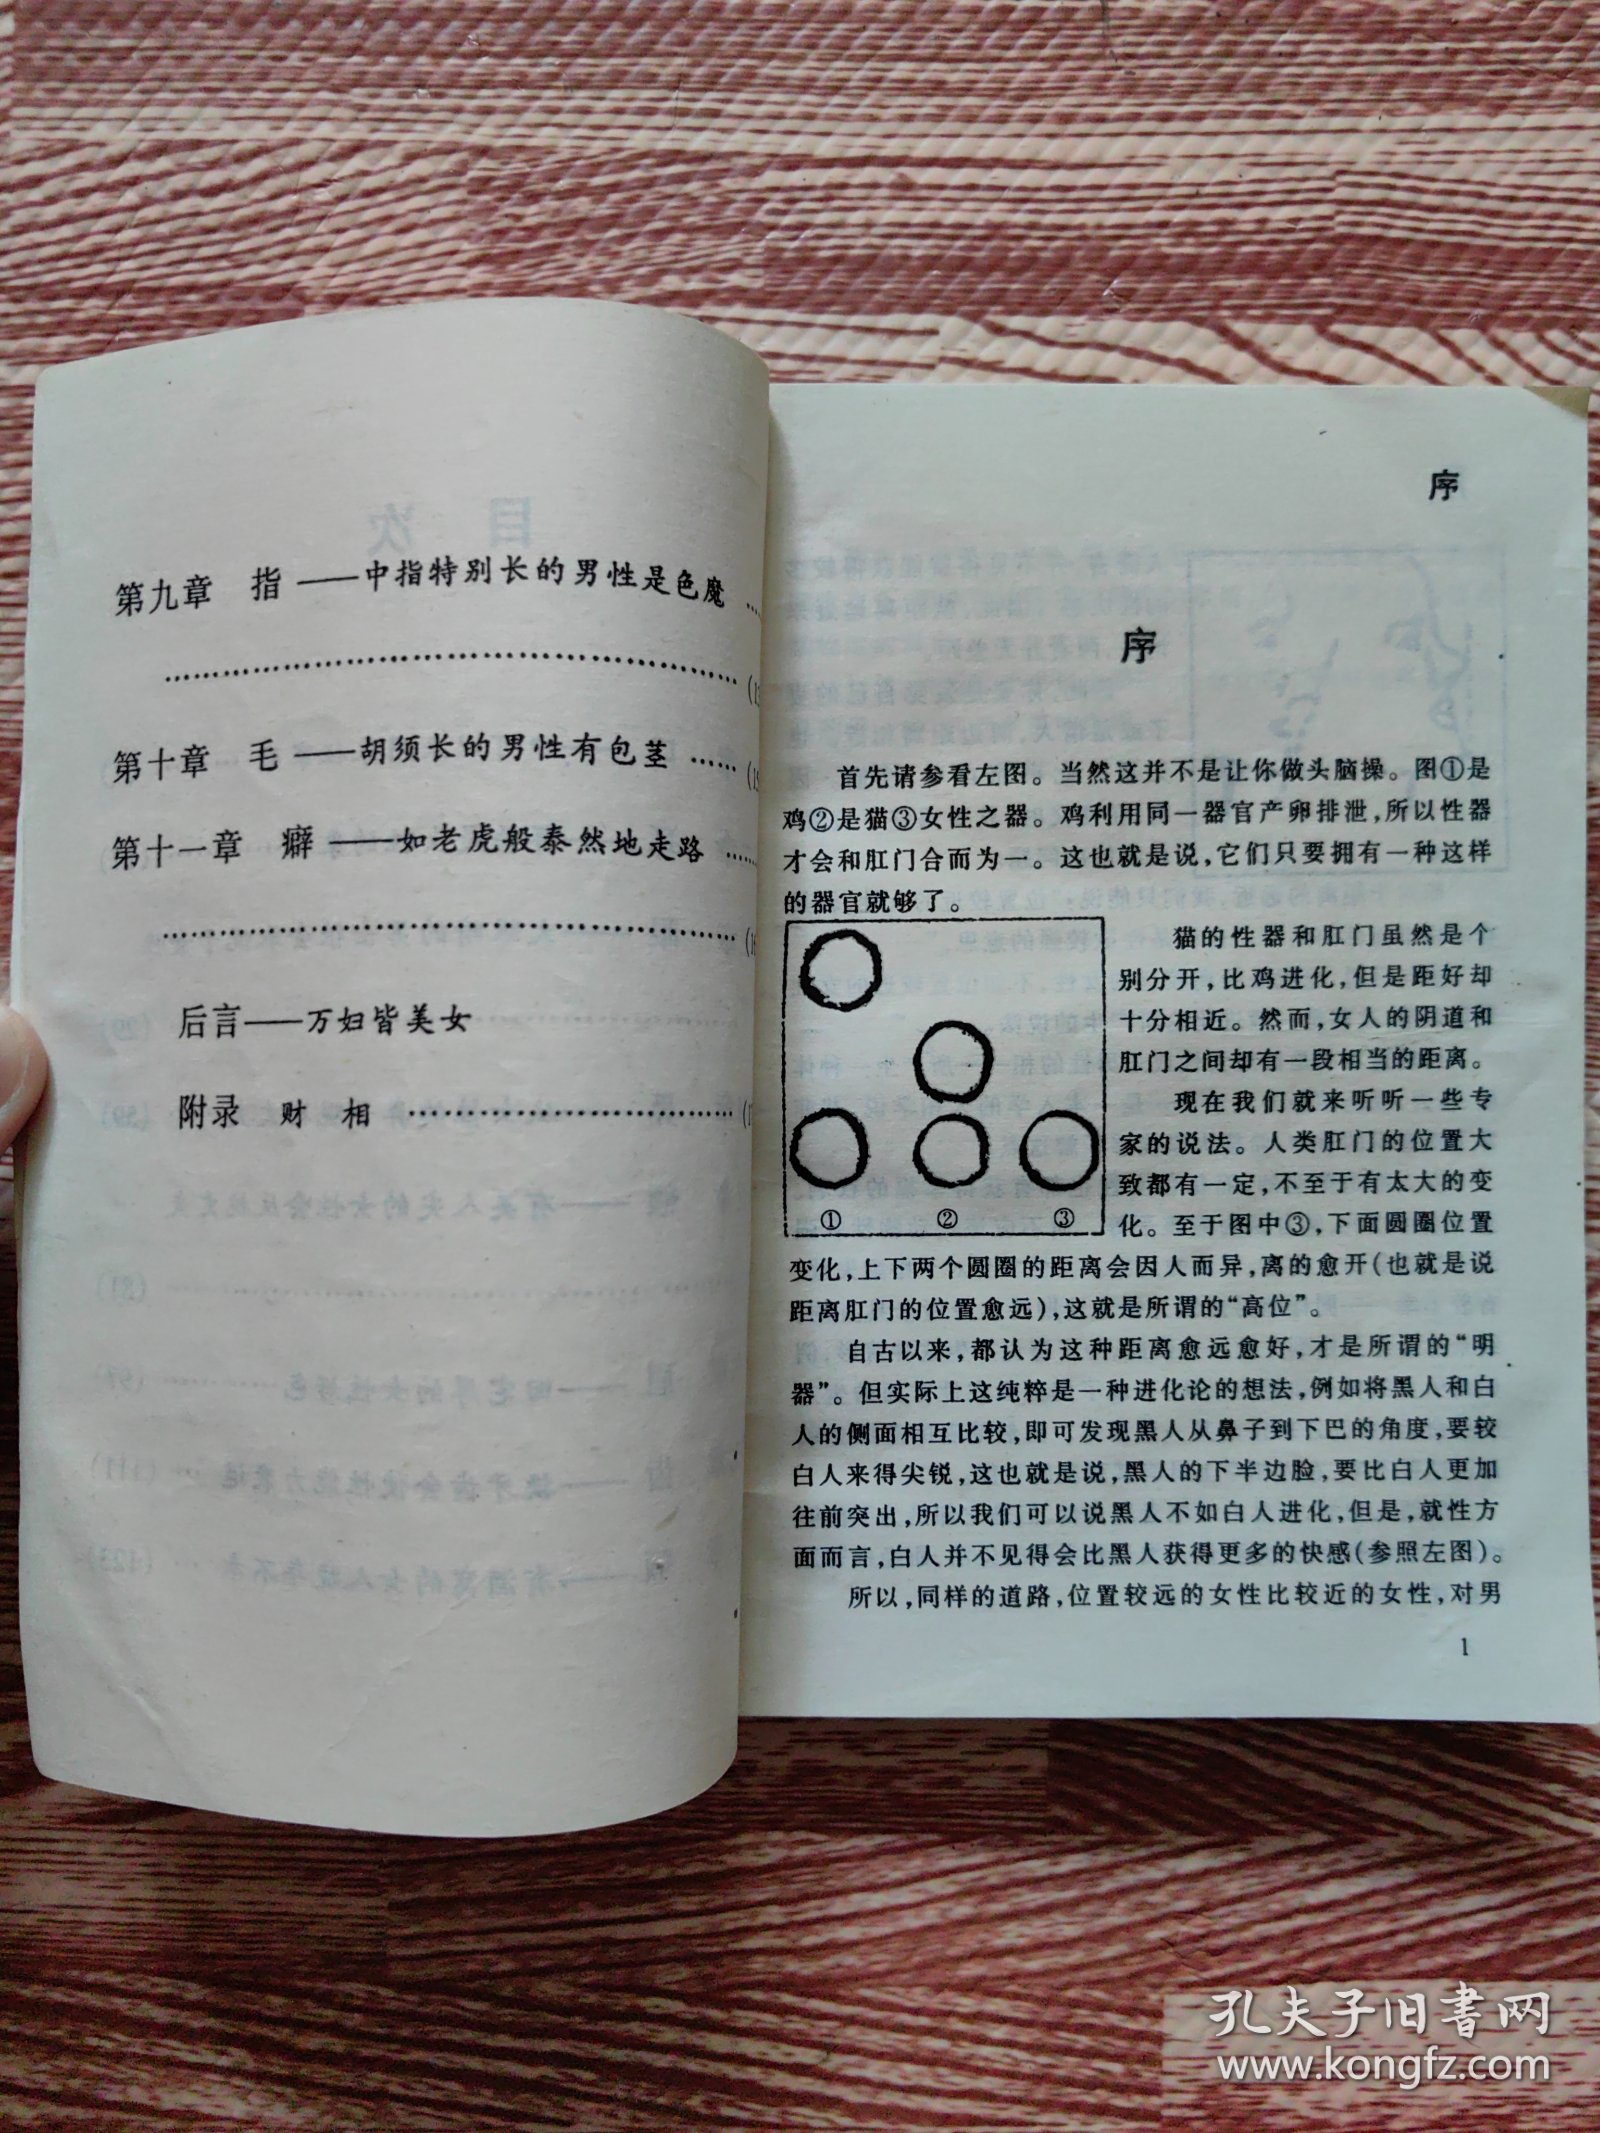 第九章 指 ——中指特别长的男性是色魔 ……
………………………………………………(1
第十章 毛 ——胡须长的男性有包茎 ……(1
第十一章 癖 ——如老虎般泰然地走路 ……
………………………………………………(1
后言——万妇皆美女
附录 财 相 ……………………………(1
序
序
首先请参看左图。当然这并不是让你做头脑操。图①是
鸡②是猫③女性之器。鸡利用同一器官产卵排泄,所以性器
才会和肛门合而为一。这也就是说,它们只要拥有一种这样
的器官就够了。
猫的性器和肛门虽然是个
别分开,比鸡进化,但是距好却
十分相近。然而,女人的阴道和
肛门之间却有一段相当的距离。
现在我们就来听听一些专
家的说法。人类肛门的位置大
致都有一定,不至于有太大的变
化。至于图中③,下面圆圈位置
① ② ③
变化,上下两个圆圈的距离会因人而异,离的愈开(也就是说
距离肛门的位置愈远),这就是所谓的“高位”。
自古以来,都认为这种距离愈远愈好,才是所谓的“明
器”。但实际上这纯粹是一种进化论的想法,例如将黑人和白
人的侧面相互比较,即可发现黑人从鼻子到下巴的角度,要较
白人来得尖锐,这也就是说,黑人的下半边脸,要比白人更加
往前突出,所以我们可以说黑人不如白人进化,但是,就性方
面而言,白人并不见得会比黑人获得更多的快感(参照左图)。
所以,同样的道路,位置较远的女性比较近的女性,对男
1
孔夫子旧书网
www.kongfz.com